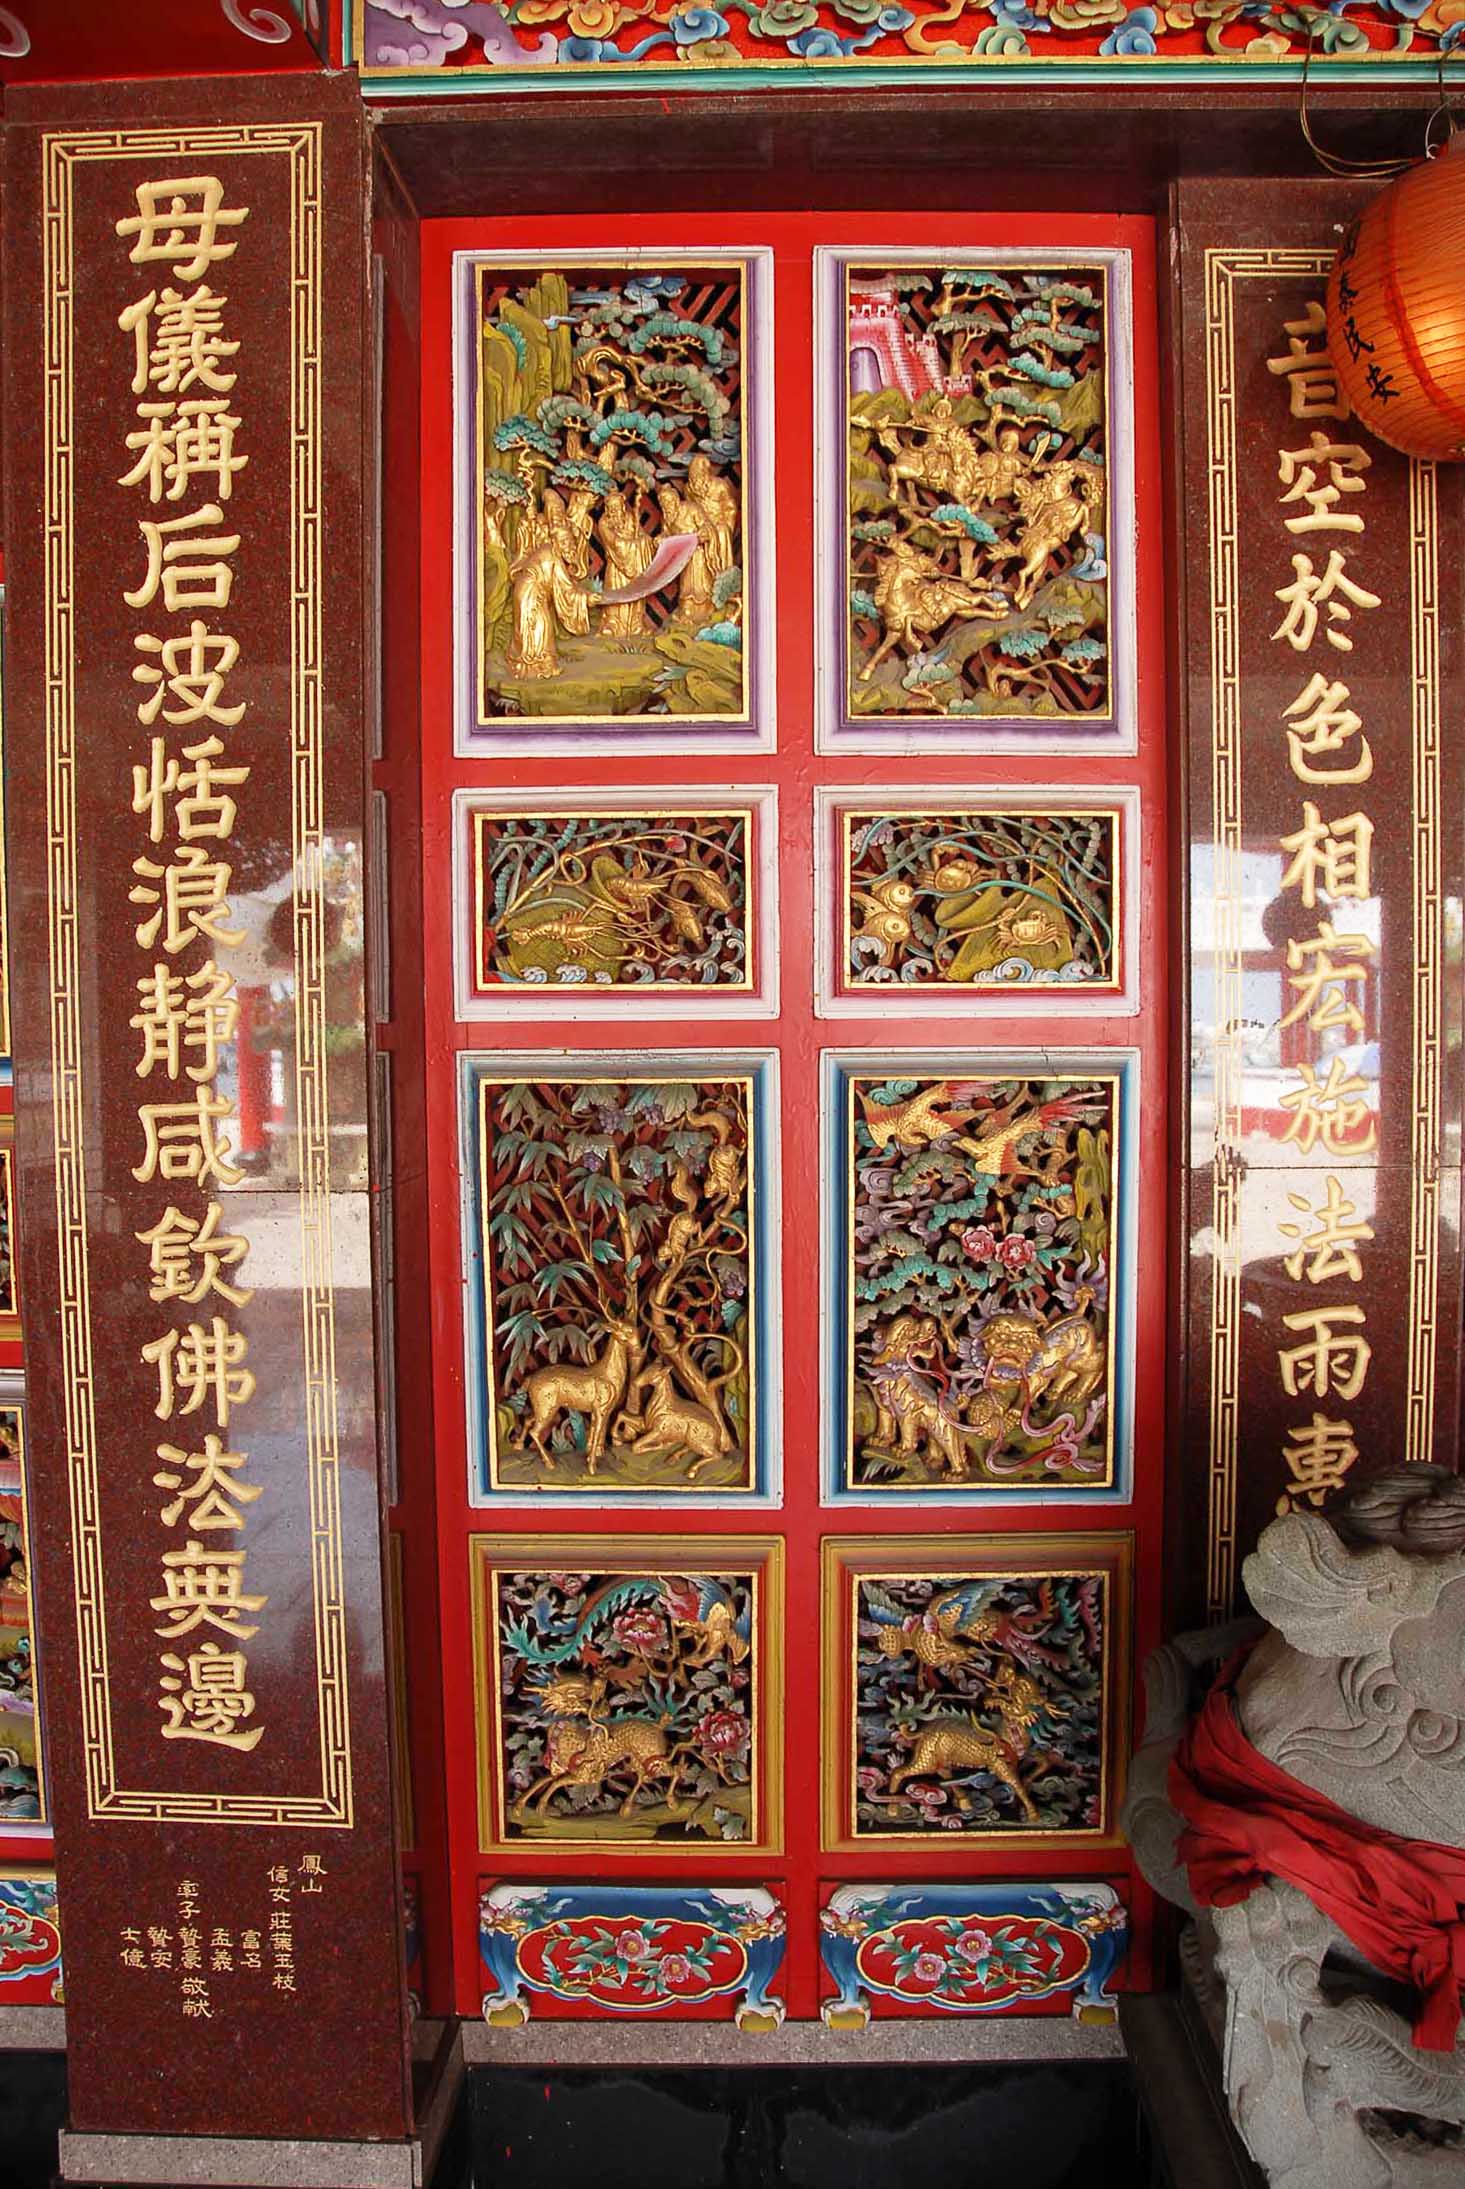 音空於色相宏施法雨惠
母儀稱后波恬浪静咸欽佛法無邊
泰民安
鳳山
信女莊葉玉枝
富名
孟義
率子贊豪敬献
贊安
士億